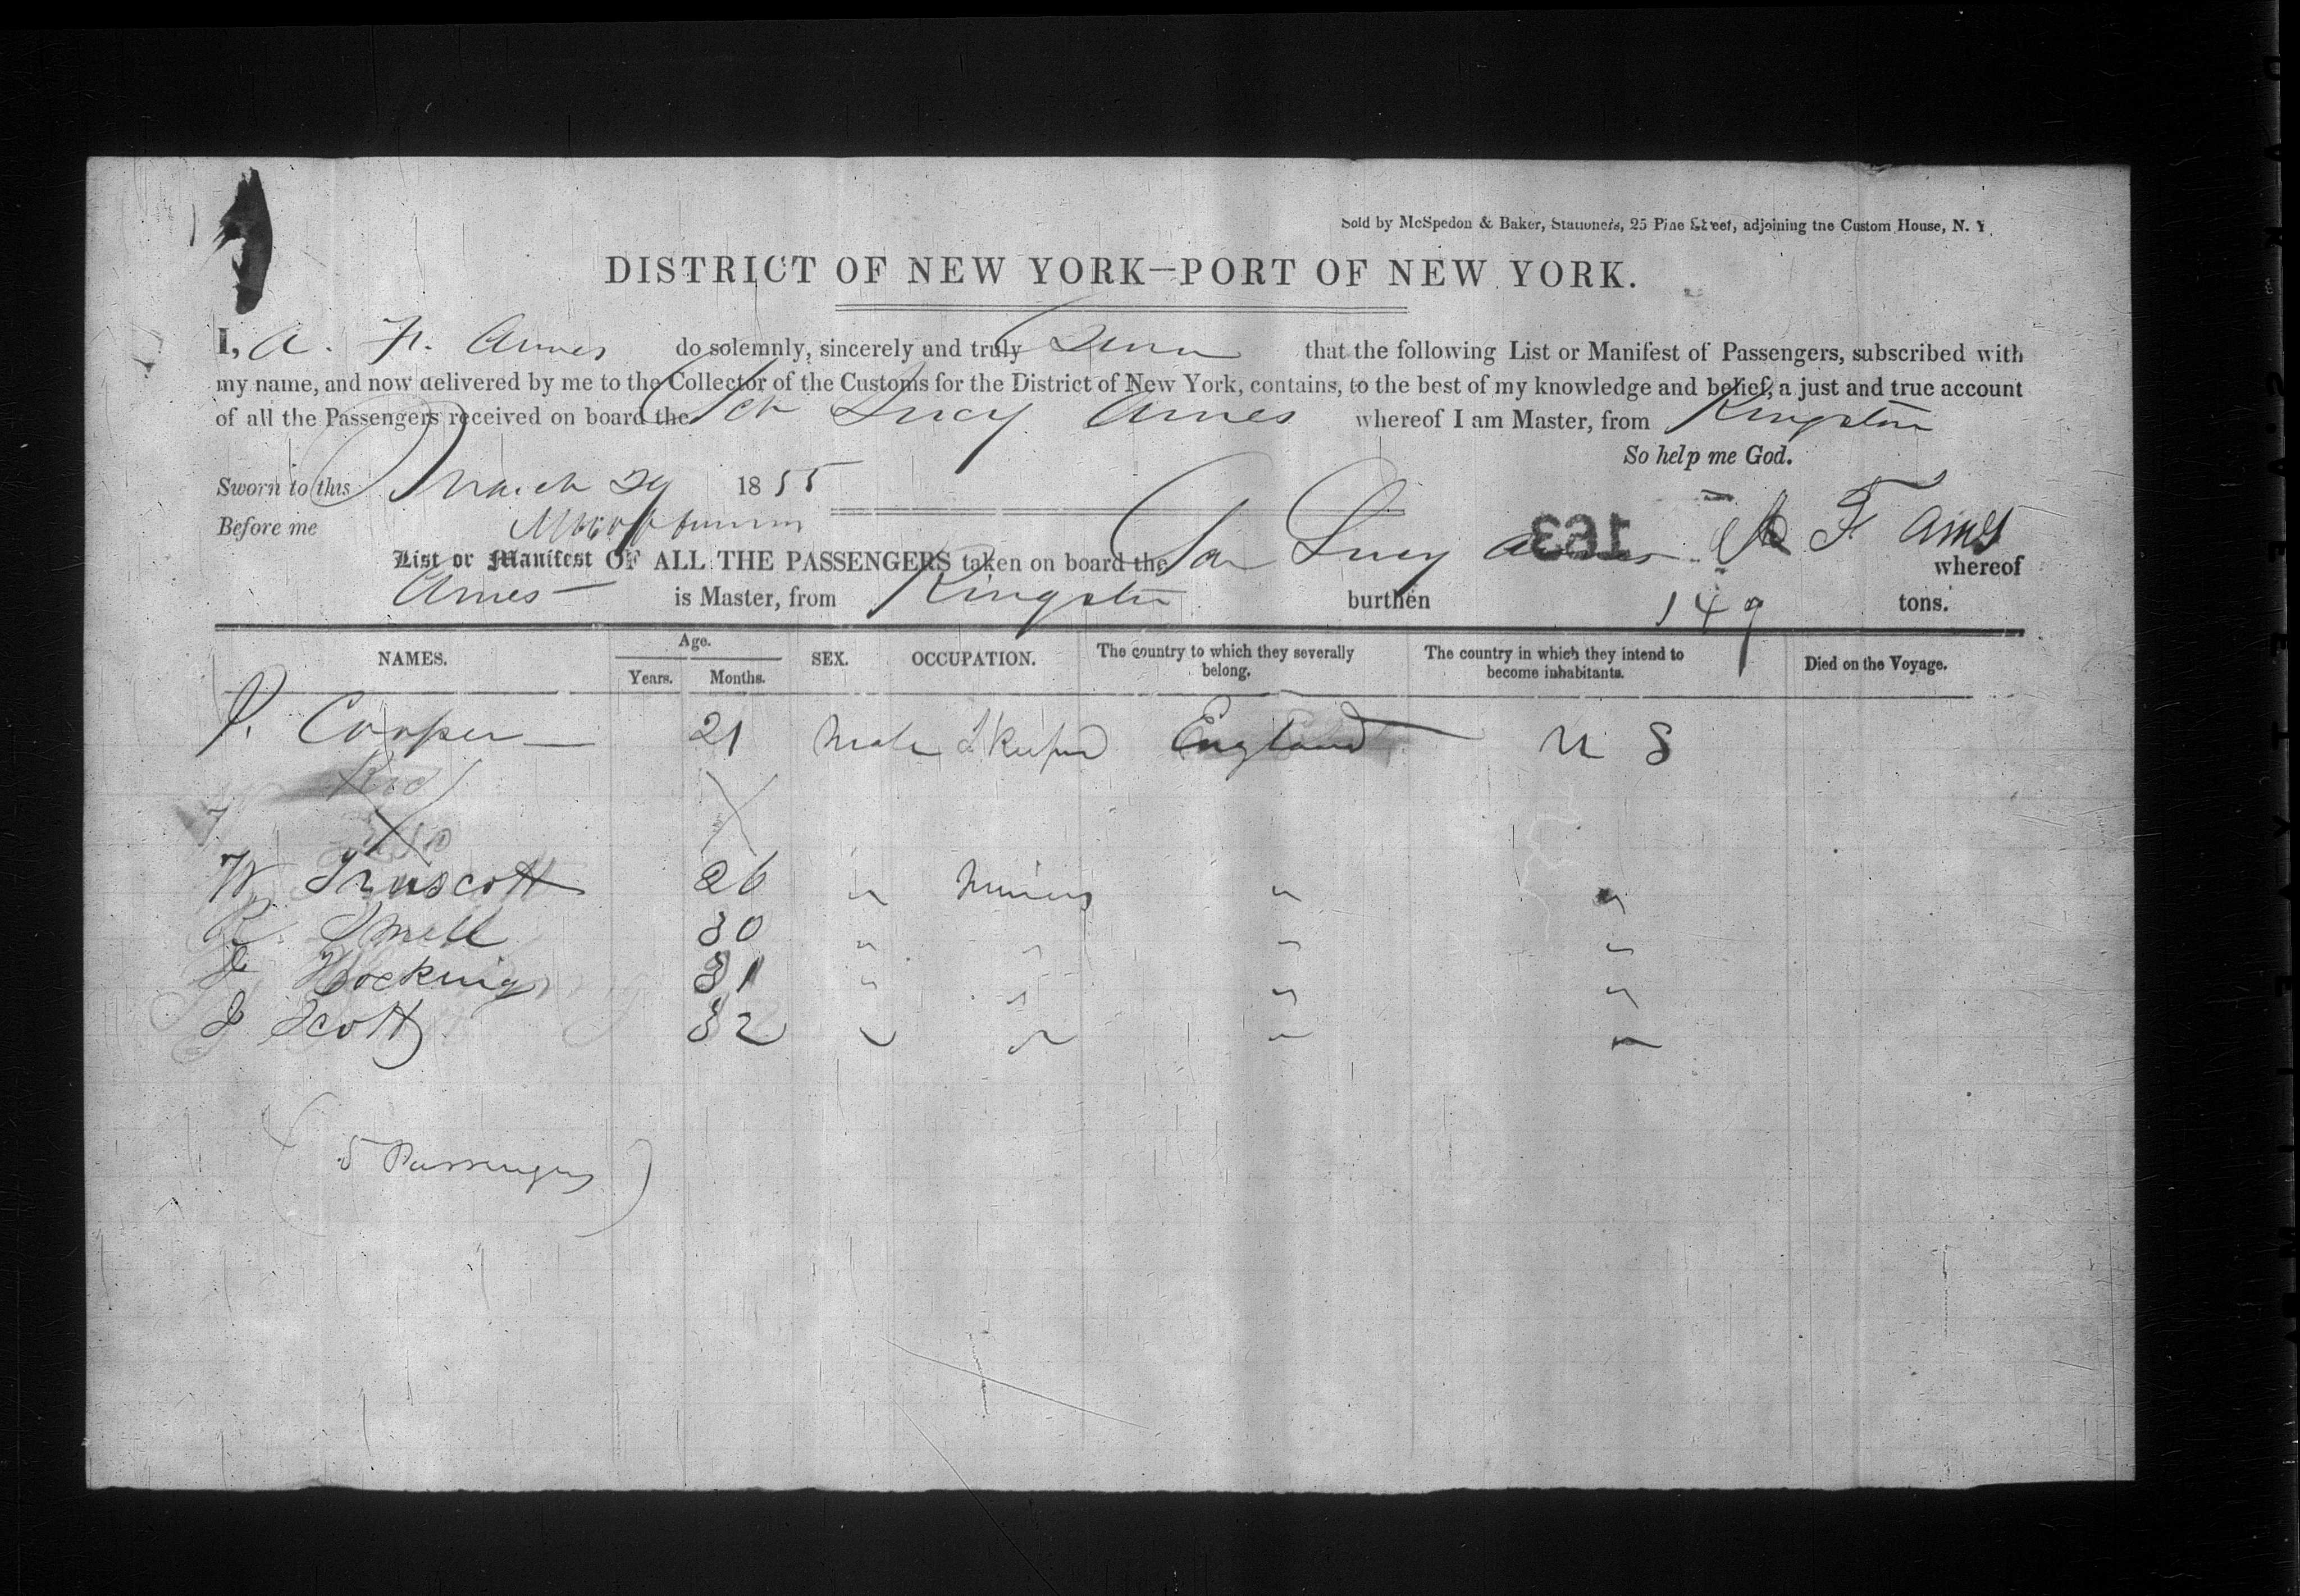 Sold by McSpedon & Baker, Stationers, 25 Pine Street, adjoining the Custom House, N. Y.
DISTRICT OF NEW YORK—PORT OF NEW YORK.
I, A. F. Ames do solemnly, sincerely and truly Swear that the following List or Manifest of Passengers, subscribed with
my name, and now delivered by me to the Collector of the Customs for the District of New York, contains, to the best of my knowledge and belief, a just and true account
of all the Passengers received on board the Sch Lucy Ames whereof I am Master, from Kingston
So help me God.
Sworn to this March 29 1855
Before me
163 A F Ames
List or Manifest OF ALL THE PASSENGERS taken on board the Sch Lucy Ames whereof
Ames is Master, from Kingston burthen 149 tons.
NAMES. Age. Years. Months. SEX. OCCUPATION. The country to which they severally belong. The country in which they intend to become inhabitants. Died on the Voyage.
Cooper 21 Male Keeper England U S
W Truscott 26 " Miners " "
R. Small 30 " " " "
J Hocking 31 " " " "
J Scott 32 " " " "
(5 Passengers)